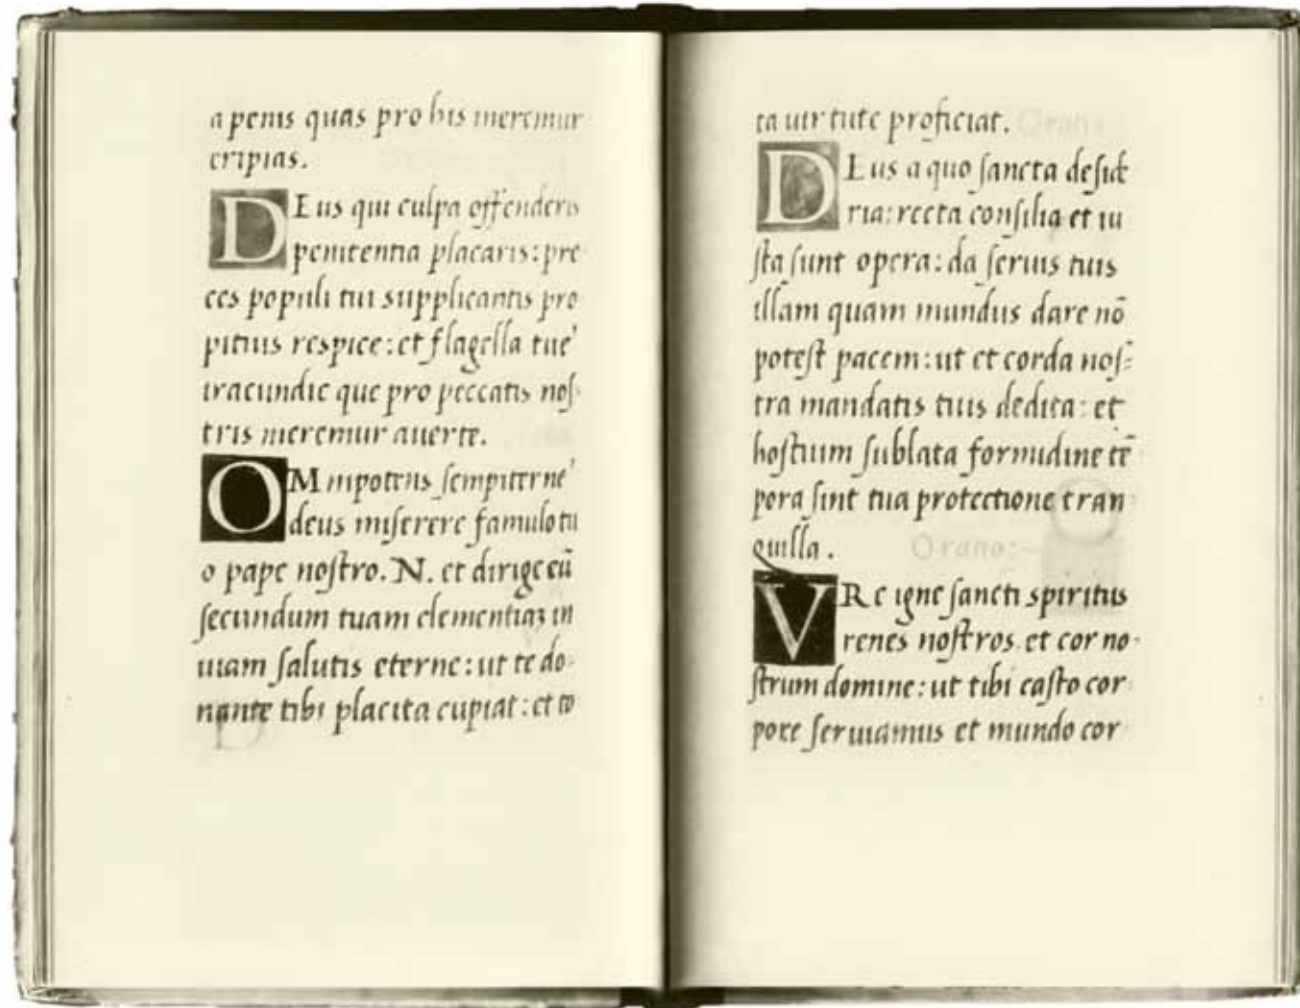 a penis quas pro his meremur
eripias.
DEus qui culpa offenderis
penitentia placaris: pre
ces populi tui supplicantis pro
pitius respice: et flagella tue
iracundie que pro peccatis noſ
tris meremur auerte.
OMnipotens ſempiterne
deus miſerere famulo tu
o pape noſtro. N. et dirige eū
ſecundum tuam clementiaꝫ in
uiam ſalutis eterne: ut te do
nante tibi placita cupiat: et to
ta uirtute proficiat.
DEus a quo ſancta deſide
ria: recta conſilia et iu
ſta ſunt opera: da ſeruis tuis
illam quam mundus dare nō
poteſt pacem: ut et corda noſ
tra mandatis tuis dedita: et
hoſtium ſublata formidine tē
pora ſint tua protectione tran
quilla.
VRe igne ſancti spiritus
renes noſtros et cor no
ſtrum domine: ut tibi caſto cor
pore ſeruiamus et mundo cor